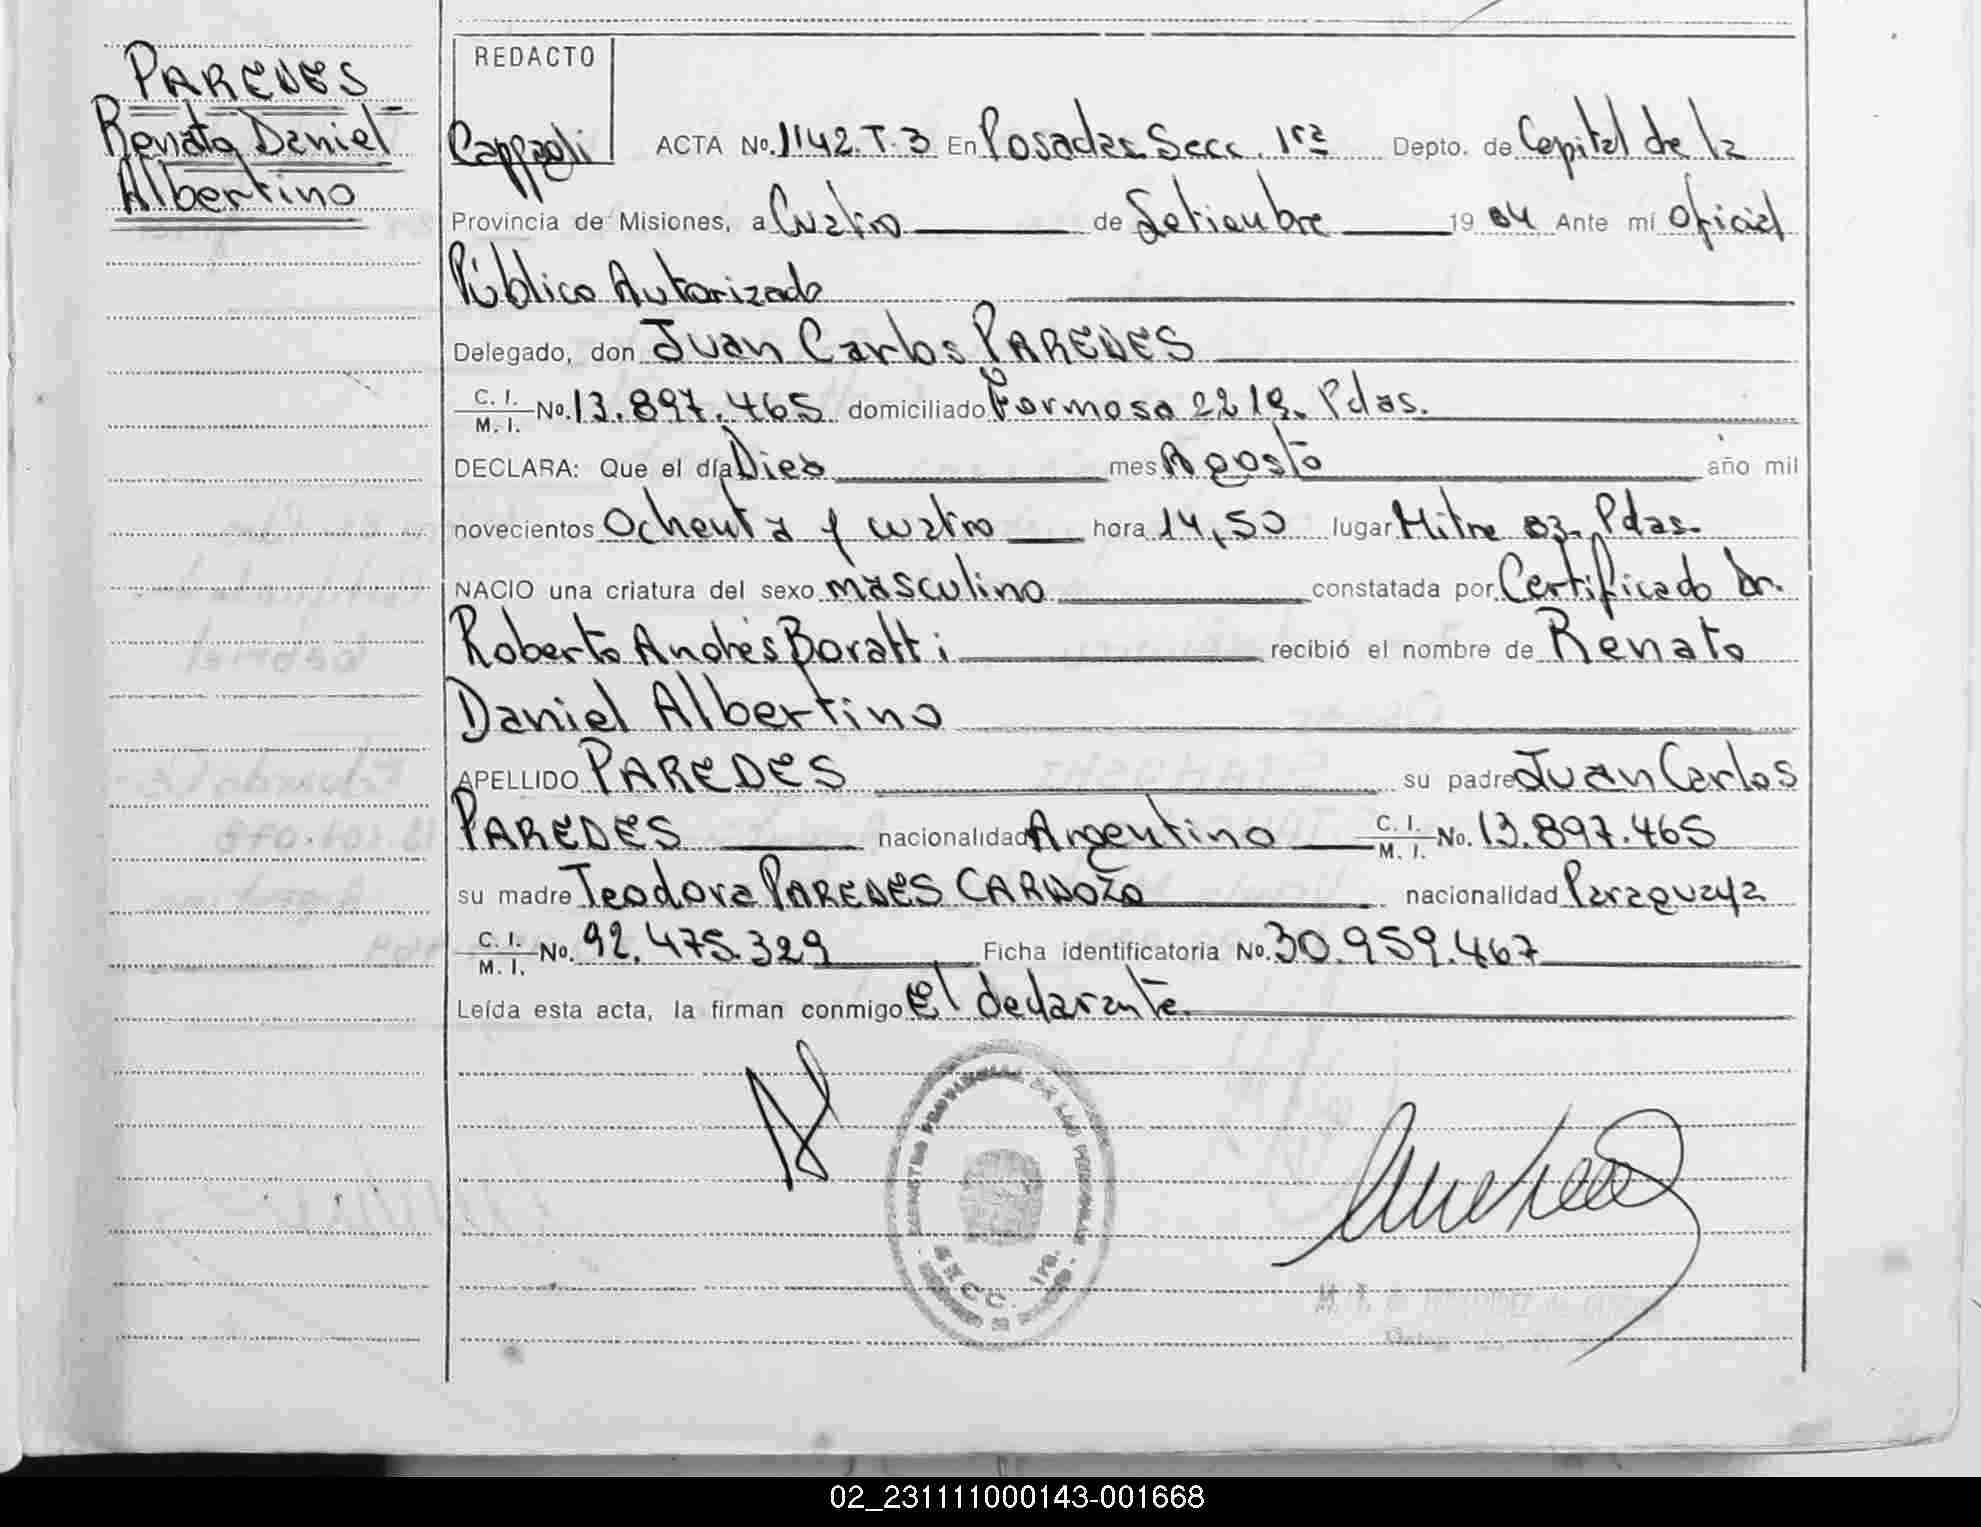 PAREDES
Renato Daniel
Albertino
REDACTO
Cappagli
ACTA No. 1142.T.3 En Posadas Secc. 1ra Depto. de Capital de la
Provincia de Misiones, a Cuatro de Setiembre 19 84 Ante mí Oficial
Público Autorizado
Delegado, don Juan Carlos PAREDES
C. I.
M. I. No. 13.897.465 domiciliado Formosa 2219. Pdas.
DECLARA: Que el día Diez mes Agosto año mil
novecientos Ochenta y cuatro hora 14,50 lugar Mitre 83. Pdas.
NACIO una criatura del sexo masculino constatada por Certificado Dr.
Roberto Andrés Boratti recibió el nombre de Renato
Daniel Albertino
APELLIDO PAREDES su padre Juan Carlos
PAREDES nacionalidad Argentino C. I.
M. I. No. 13.897.465
su madre Teodora PAREDES CARDOZO nacionalidad Paraguaya
C. I.
M. I. No. 92.475.329 Ficha identificatoria No. 30.959.467
Leída esta acta, la firman conmigo El declarante.
REGISTRO PROVINCIAL DE LAS PERSONAS
SECC. 1ra.
02_231111000143-001668